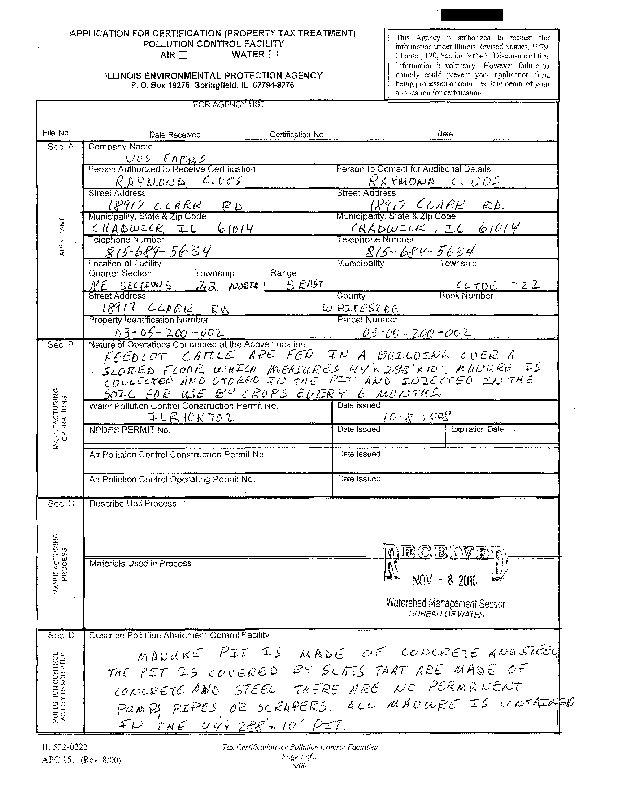 APPLICATION FOR CERTIFICATION (PROPERTY TAX TREATMENT)
POLLUTION CONTROL FACILITY
AIR WATER
ILLINOIS ENVIRONMENTAL PROTECTION AGENCY
P. O. Box 19276 Springfield, IL 62794-9276
This Agency is authorized to request this
information under Illinois Revised Statutes, 1979,
Disclosure of this
information is voluntary. However, failure to
comply could prevent your application from
being processed or could result in denial of your
application for certification.
FOR AGENCY USE
File No. Date Received Certification No. Date
Sec. A Company Name
VOS FARMS
Person Authorized to Receive Certification Person to Contact for Additional Details
RAYMOND C. VOS RAYMOND C. VOS
Street Address Street Address
18917 CLARK RD 18917 CLARK RD.
Municipality, State & Zip Code Municipality, State & Zip Code
CHADWICK IL 61014 CHADWICK, IL 61014
Telephone Number Telephone Number
815-684-5634 815-684-5634
Location of Facility Municipality Township
Quarter Section Township Range
NE SECTIONS 22 NORTH 5 EAST CLYDE -22
Street Address County Book Number
18917 CLARK RD WHITESIDE
Property Identification Number Parcel Number
03-05-200-002 03-05-200-002
Sec. B Nature of Operations Conducted at the Above Location
FEEDLOT CATTLE ARE FED IN A BUILDING OVER A
SLOTED FLOOR WHICH MEASURES 44'x288'x10'. MANURE IS
COLLECTED AND STORED IN THE PIT AND INJECTED IN THE
SOIL FOR USE BY CROPS EVERY 6 MONTHS
MANUFACTURING
OPERATIONS
Water Pollution Control Construction Permit No. Date Issued
ILR10K702
NPDES PERMIT No. Date Issued Expiration Date
Air Pollution Control Construction Permit No. Date Issued
Air Pollution Control Operating Permit No. Date Issued
Sec. C Describe Unit Process
MANUFACTURING
PROCESS
Materials Used in Process
RECEIVED
NOV - 8 2016
Watershed Management Section
BUREAU OF WATER
Sec. D Describe Pollution Abatement Control Facility
MANURE PIT IS MADE OF CONCRETE AND STEEL
THE PIT IS COVERED BY SLATS THAT ARE MADE OF
CONCRETE AND STEEL THERE ARE NO PERMANENT
PUMPS PIPES OR SCRAPERS. ALL MANURE IS CONTAINED
IN THE 44x288x10' PIT.
IL 532-0222
APC 151 (Rev. 8/00)
Tax Certification for Pollution Control Facilities